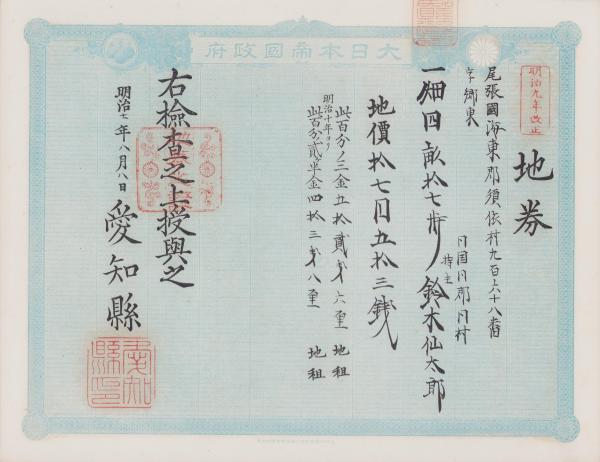 大日本帝國政府
明治九年改正
地券
尾張國海東郡須依村九百六十八番
字郷東
一畑四畝拾七歩
同国同郡同村
持主 鈴木仙太郎
地價拾七円五拾三銭
此百分ノ三金五拾貳銭六厘 地租
明治十年ヨリ
此百分ノ貳半金四拾三銭八厘 地租
右檢査之上授與之
明治十一年八月八日
愛知縣
愛知縣印